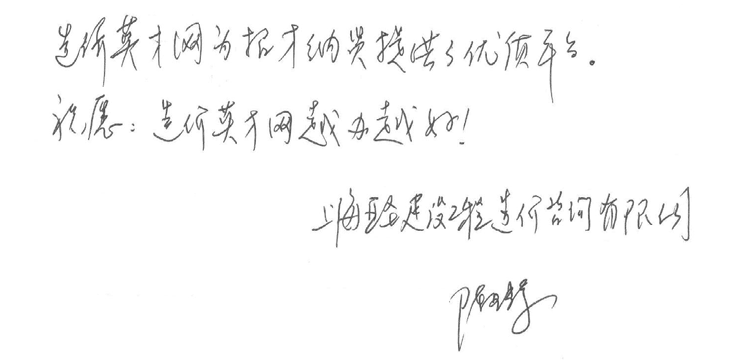 造价英才网为招才纳贤提供了优质平台。
祝愿：造价英才网越办越好！
上海建设工程造价咨询有限公司